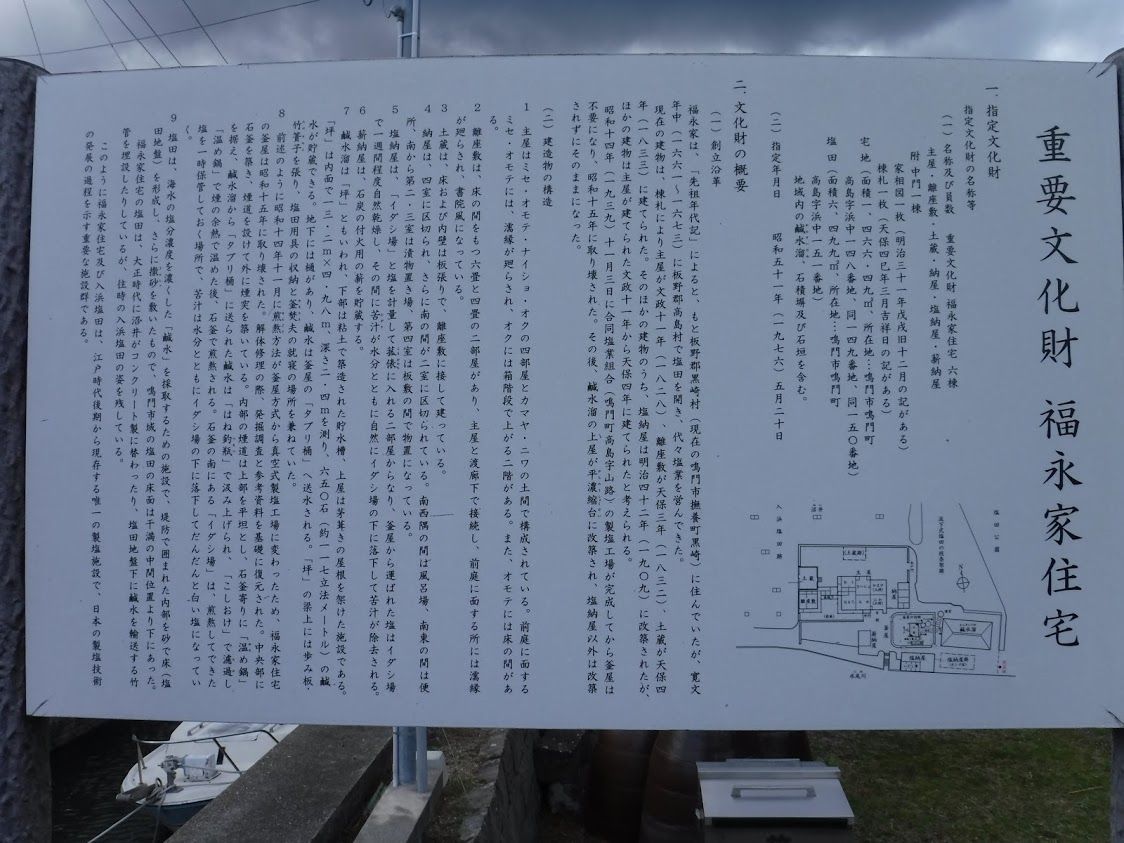 重要文化財 福永家住宅
一.指定文化財
指定文化財の名称等
(一)名称及び員数 重要文化財 福永家住宅 六棟
主屋・離座敷・土蔵・納屋・塩納屋・薪納屋
附 中門 一棟
家相図一枚(明治三十一年戊戌旧十二月の記がある)
棟札一枚(天保四巳年三月吉祥日の記がある)
宅 地(面積一、四六六・四九㎡、所在地…鳴門市鳴門町
高島字浜中一四八番地、同一四九番地、同一五〇番地)
塩田(面積六、四九九㎡、所在地…鳴門市鳴門町
高島字浜中一五一番地)
地域内の鹹水溜、石積塀及び石垣を含む。
(二)指定年月日 昭和五十一年(一九七六)五月二十日
二.文化財の概要
(一)創立沿革
福永家は、「先祖年代記」によると、もと板野郡黒崎村(現在の鳴門市撫養町黒崎)に住んでいたが、寛文
年中(一六六一~一六七三)に板野郡高島村で塩田を開き、代々塩業を営んできた。
現在の建物は、棟札により主屋が文政十一年(一八二八)、離座敷が天保三年(一八三二)、土蔵が天保四
年(一八三三)に建てられた。そのほかの建物のうち、塩納屋は明治四十二年(一九〇九)に改築されたが、
ほかの建物は主屋が建てられた文政十一年から天保四年に建てられたと考えられる。
昭和十四年(一九三九)十一月三日に合同塩業組合(鳴門町高島字山路)の製塩工場が完成してから釜屋は
不要になり、昭和十五年に取り壊された。その後、鹹水溜の上屋が平濃縮台に改築され、塩納屋以外は改築
されずにそのままになった。
(二)建造物の構造
1 主屋はミセ・オモテ・ナイショ・オクの四部屋とカマヤ・ニワの土間で構成されている。前庭に面する
ミセ・オモテには、濡縁が廻らされ、オクには箱階段で上がる二階がある。また、オモテには床の間があ
る。
2 離座敷は、床の間をもつ六畳と四畳の二部屋があり、主屋と渡廊下で接続し、前庭に面する所には濡縁
が廻らされ、書院風になっている。
3 土蔵は、床および内壁は板張りで、離座敷に接して建っている。
4 納屋は、四室に区切られ、さらに南の間が二室に区切られている。南西隅の間は風呂場、南東の間は便
所、南から第二・三室は漬物置き場、第四室は板敷の間で物置になっている。
5 塩納屋は、「イダシ場」と塩を計量して菰俵に入れる二部屋からなり、釜屋から運ばれた塩はイダシ場
で一週間程度自然乾燥し、その間に苦汁が水分とともに自然にイダシ場の下に落下して苦汁が除去される。
6 薪納屋は、石炭の付火用の薪を貯蔵する。
7 鹹水溜は「坪」ともいわれ、下部は粘土で築造された貯水槽、上屋は茅葺きの屋根を架けた施設である。
「坪」は内面で一三・二m×四・九八m、深さ二・四mを測り、六五〇石(約一一七立法メートル)の鹹
水が貯蔵できる。地下には樋があり、鹹水は釜屋の「タブリ桶」へ送水される。「坪」の梁上には歩み板・
竹簀子を張り、塩田用具の収納と釜焚夫の就寝の場所を兼ねていた。
8 前述のように昭和十四年十一月に煎熬方法が釜屋方式から真空式製塩工場に変わったため、福永家住宅
の釜屋は昭和十五年に取り壊された。解体修理の際、発掘調査と参考資料を基礎に復元された。中央部に
石釜を築き、煙道を設けて外に煙突を築いている。内部の煙道は上部を平坦とし、石釜寄りに「温め鍋」
を据え、鹹水溜から「タブリ桶」に送られた鹹水は「はね釣瓶」で汲み上げられ、「こしおけ」で濾過し、
「温め鍋」で煙の余熱で温めた後、石釜で煎熬される。石釜の南にある「イダシ場」は、煎熬してできた
塩を一時保管しておく場所で、苦汁は水分とともにイダシ場の下に落下してだんだんと白い塩になってい
く。
9 塩田は、海水の塩分濃度を濃くした「鹹水」を採取するための施設で、堤防で囲まれた内部を砂で床(塩
田地盤)を形成し、さらに撒砂を敷いたもので、鳴門市域の塩田の床面は干満の中間位置より下にあった。
福永家住宅の塩田は、大正時代に沼井がコンクリート製に替わったり、塩田地盤下に鹹水を輸送する竹
管を埋設したりしているが、往時の入浜塩田の姿を残している。
このように福永家住宅及び入浜塩田は、江戸時代後期から現存する唯一の製塩施設で、日本の製塩技術
の発展の過程を示す重要な施設群である。
塩田公園
流下式塩田の枝条架跡
入浜塩田跡
土蔵
離座敷
主屋
納屋
薪納屋
釜屋
鹹水溜
塩納屋
塩納屋跡